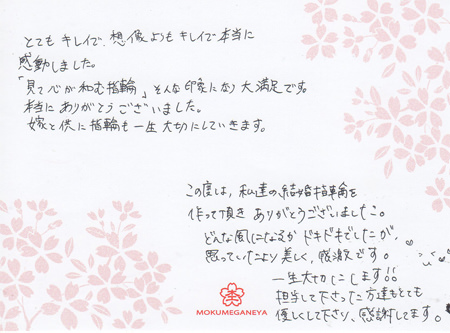 とてもキレイで、想像よりもキレイで本当に
感動しました。
「見て心が和む指輪」そんな印象になり大満足です。
本当にありがとうございました。
嫁と供に指輪も一生大切にしていきます。
この度は、私達の結婚指輪を
作って頂きありがとうございました。
どんな風になるかドキドキでしたが、
思っていたより美しく、感激です。
一生大切にします!!
担当して下さった方達もとても
優しくして下さり、感謝してます。
MOKUMEGANEYA